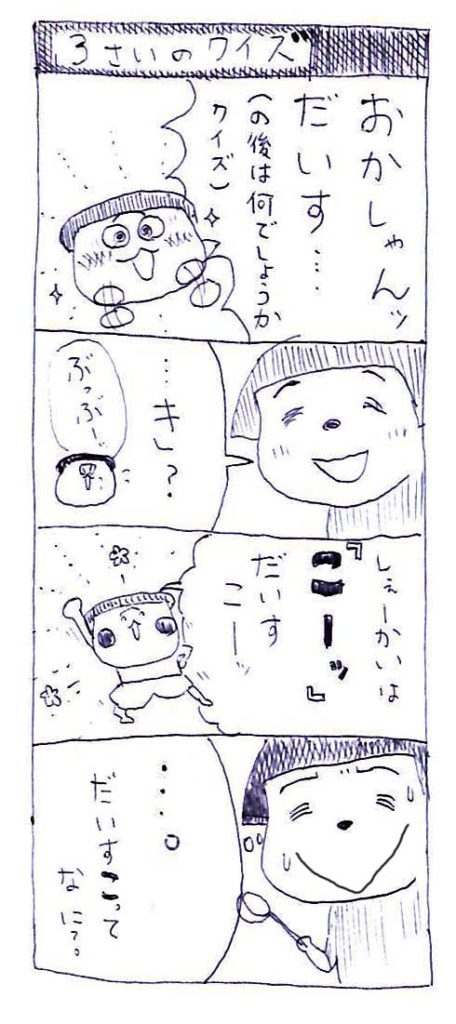 3さいのクイズ
おかしゃんッ
だいす…
(の後は何でしょうか
クイズ)
…キ?
ぶっぶー
しぇーかいは
『こーッ』
だいす
こーッ
・・・。
だいすこって
なに?。